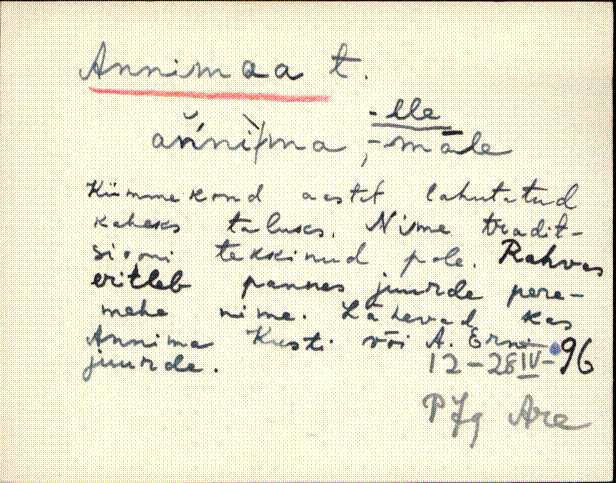 Annimaa t.
-lle
ańnìma, -māle
Kümmekond aastat lahutatud
kaheks taluks. Nime tradit-
siooni tekkinud pole. Rahvas
eritleb pannes juurde pere-
mehe nime. Lähevad kas
Annima Kusti või A. Erni
juurde. 12-28 IV-96
PJg Are